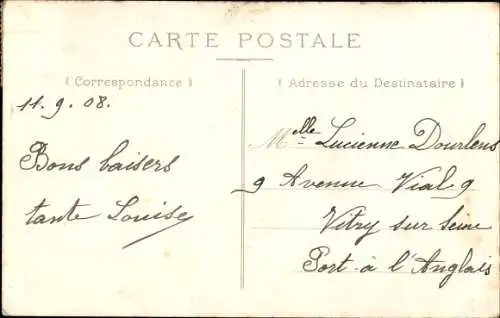 CARTE POSTALE
( Correspondance )
11. 9. 08.
Bons baisers
tante Louise
( Adresse du Destinataire )
Melle Lucienne Dourlens
9 Avenue Vial 9
Vitry sur Seine
Port à l'Anglais